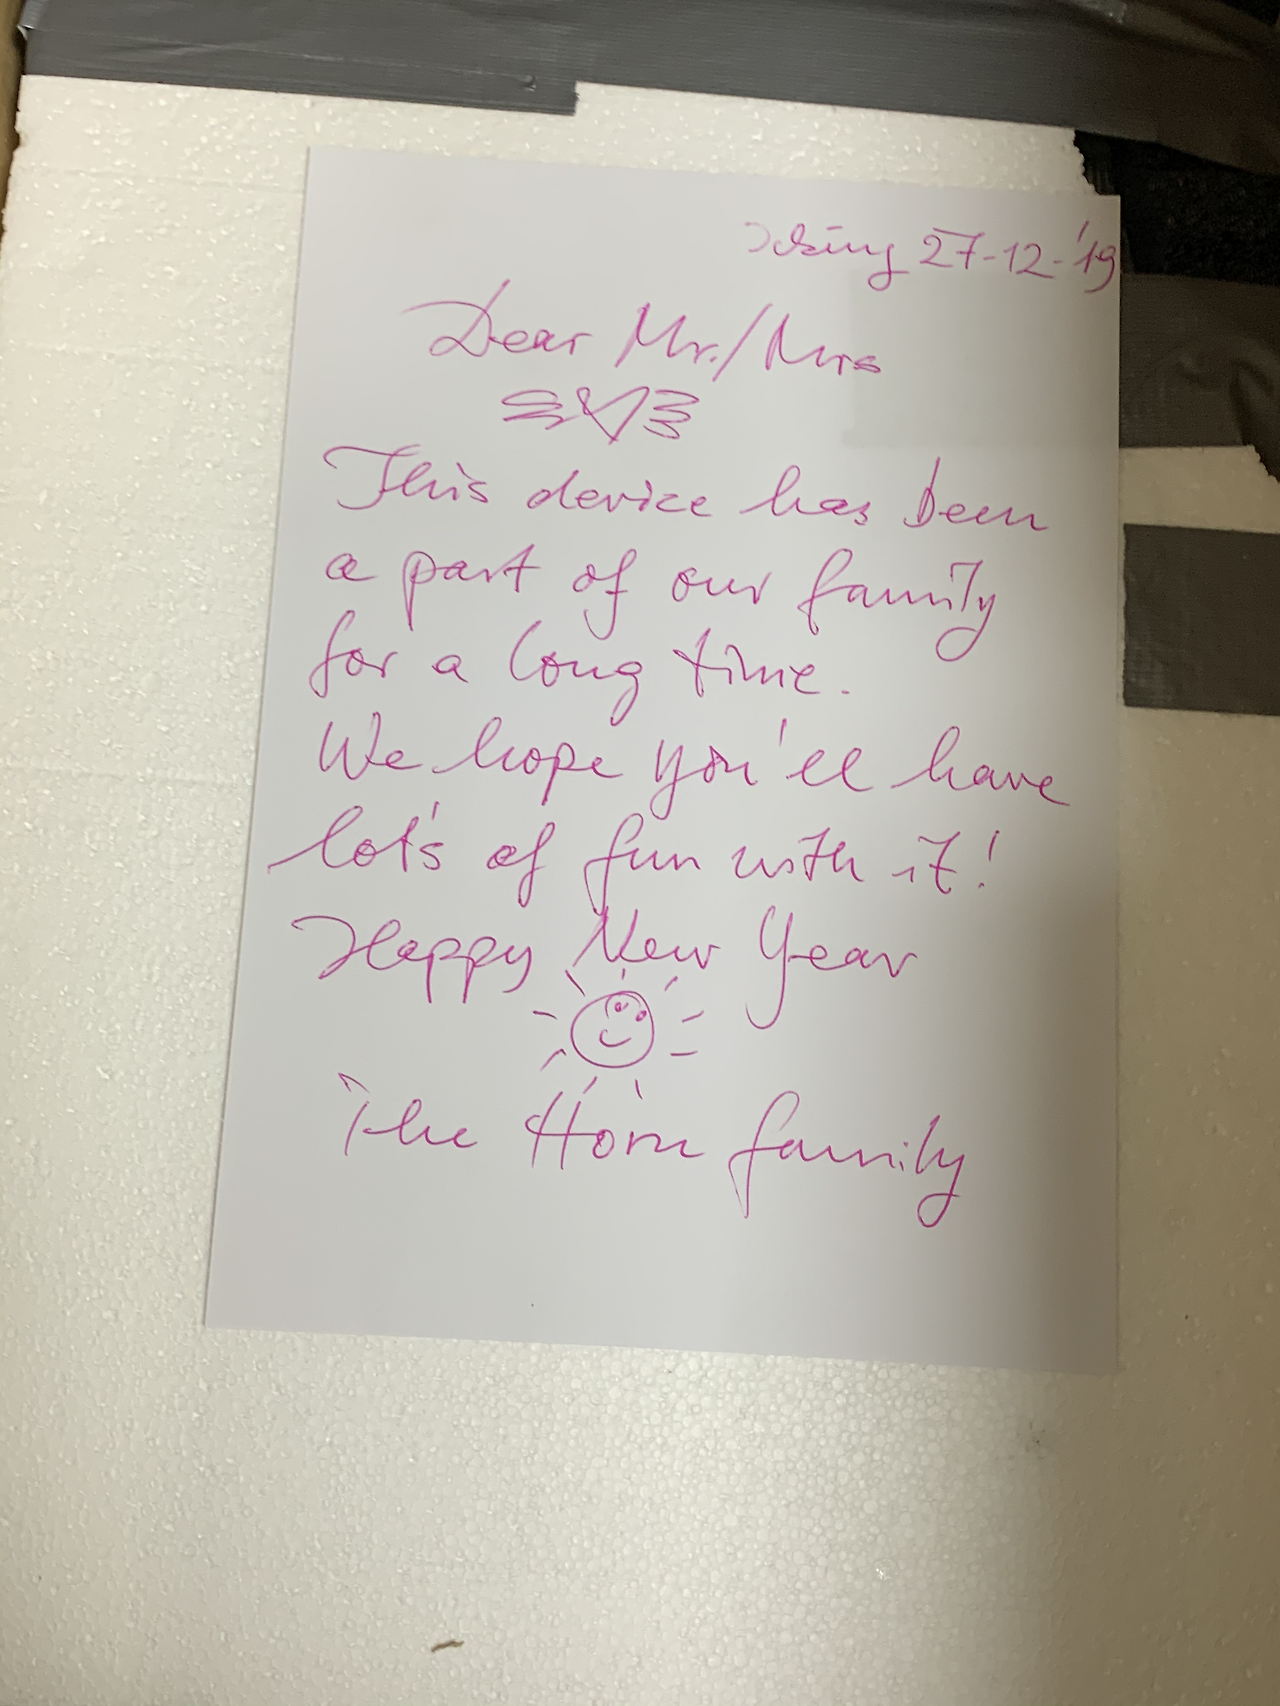 Icking 27-12-'19
Dear Mr./Mrs
This device has been
a part of our family
for a long time.
We hope you'll have
lot's of fun with it!
Happy New Year
The Horn family